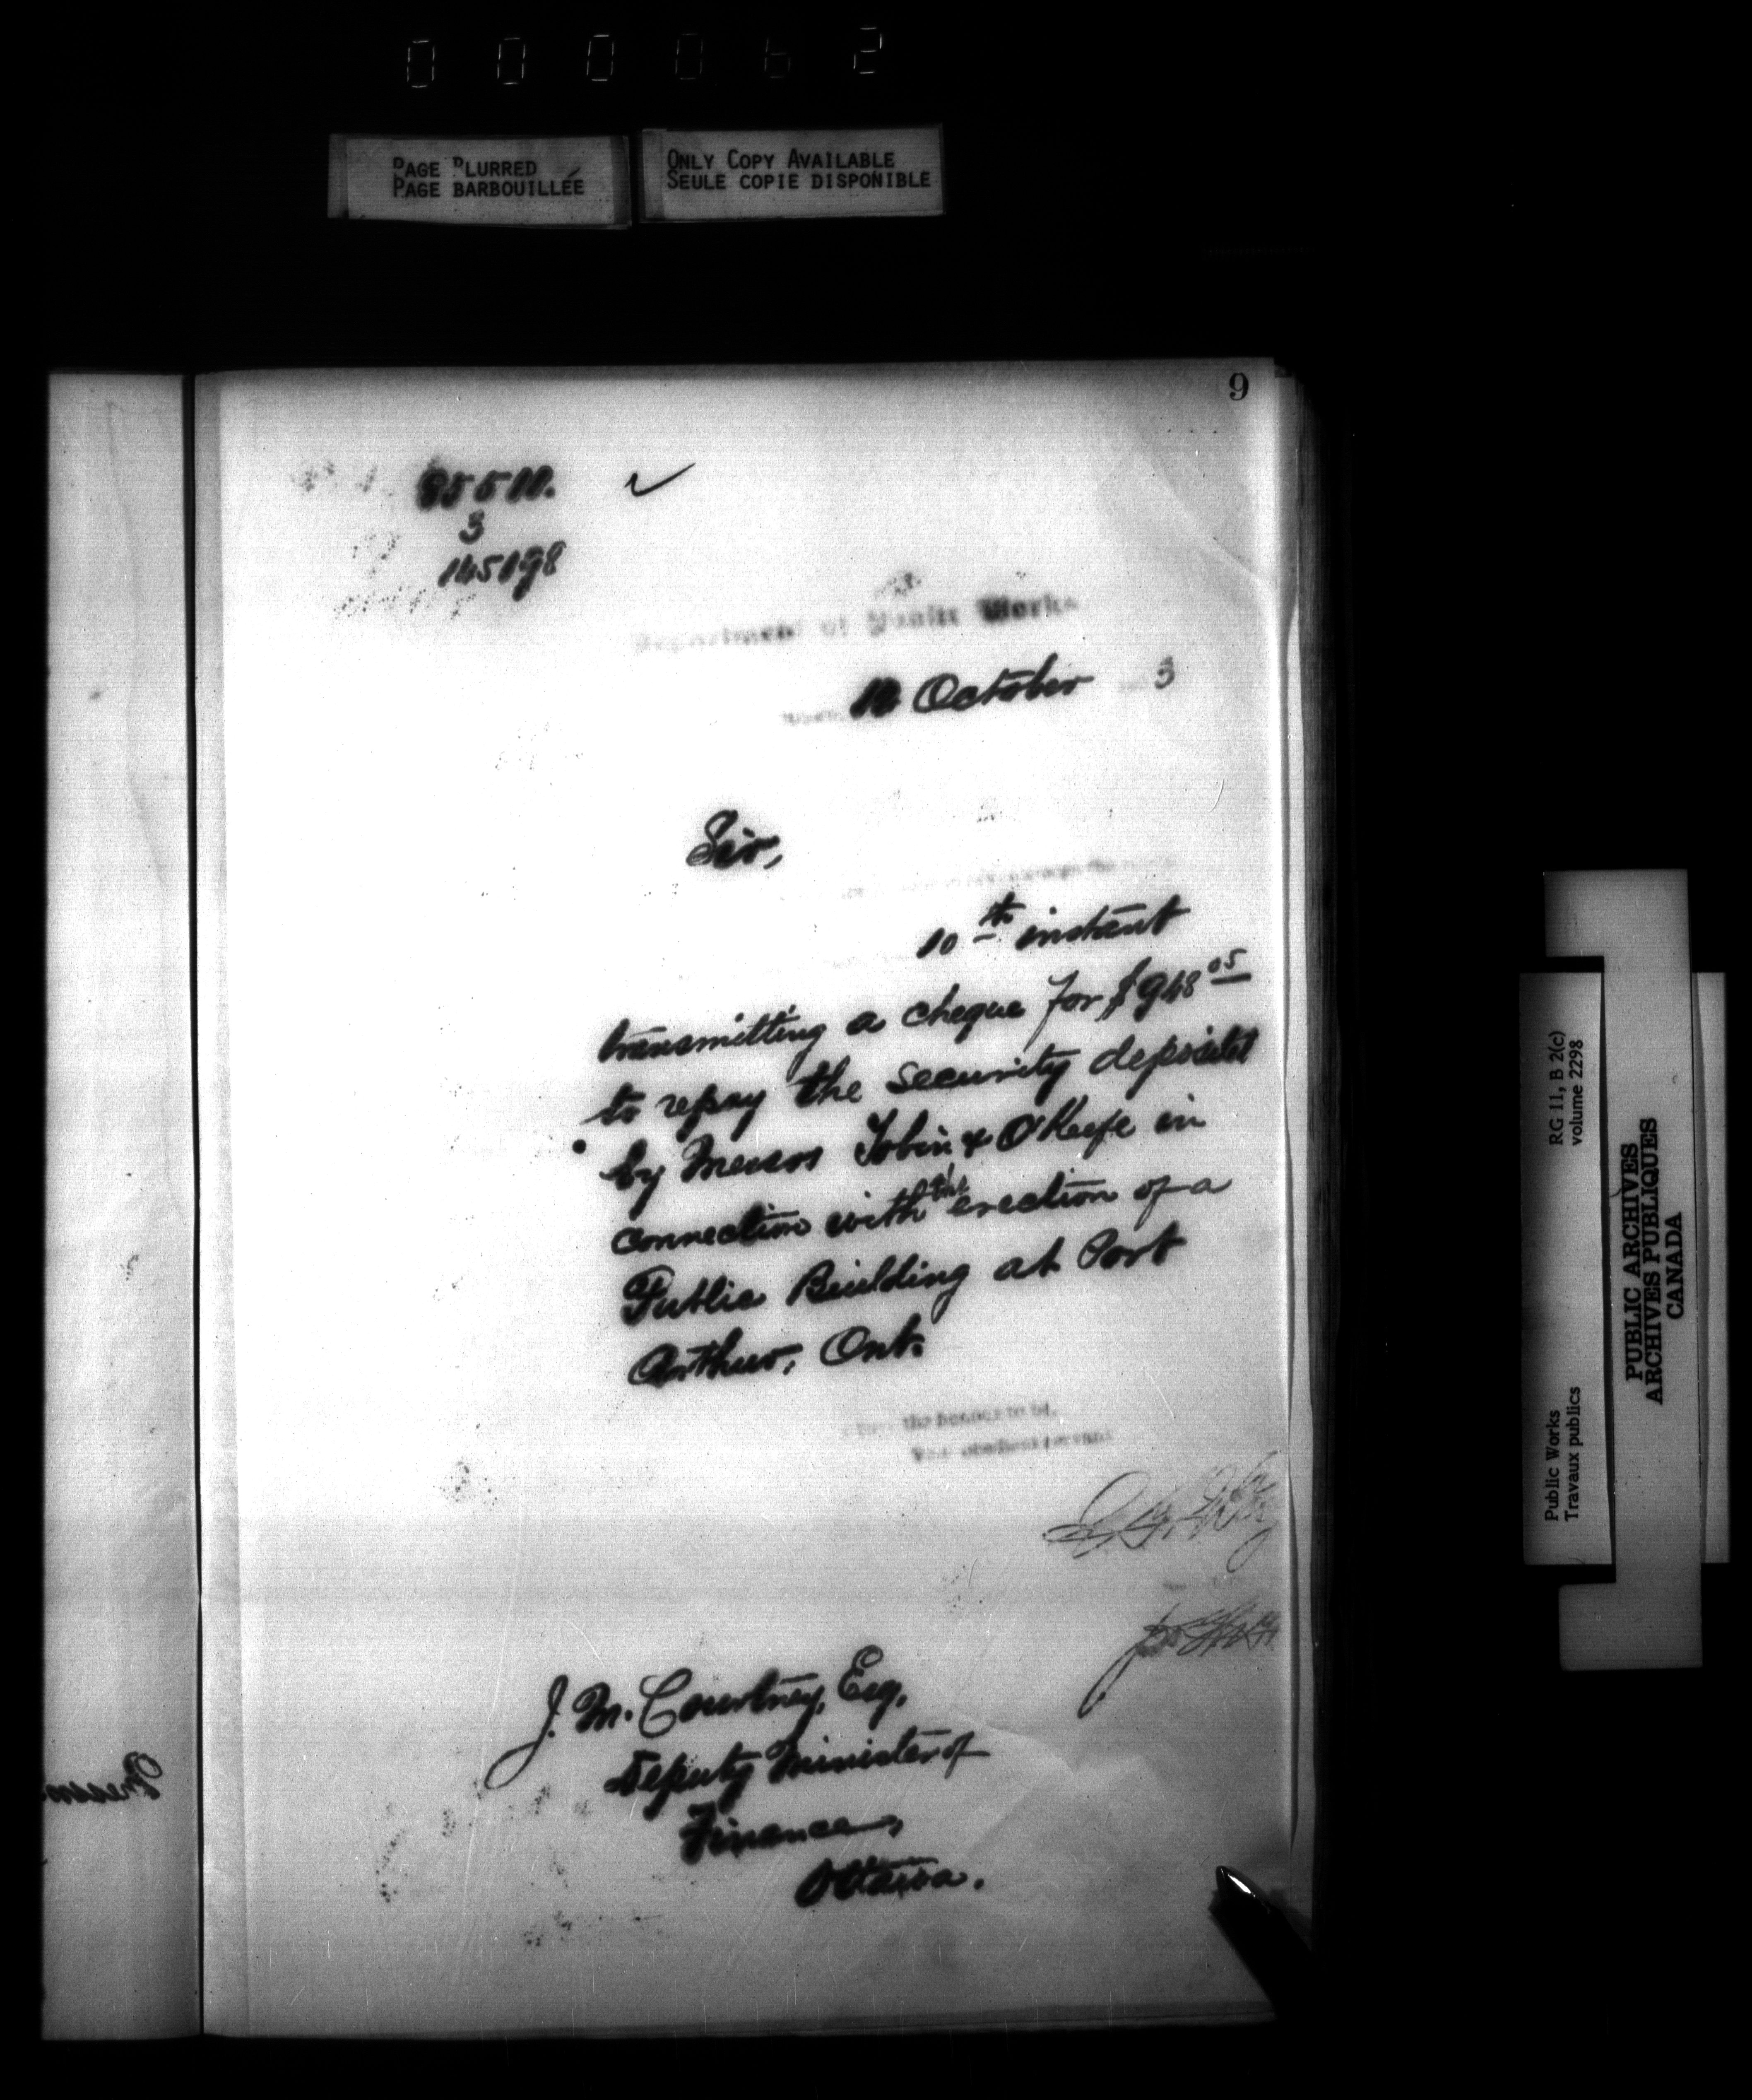 000062
PAGE BLURRED
PAGE BARBOUILLÉE
ONLY COPY AVAILABLE
SEULE COPIE DISPONIBLE
9
3
145198
Department of Public Works
October 3
Sir,
10th instant
transmitting a cheque for $948 05
to repay the security deposited
by Messrs Tobin & O'Keefe in
connection with the erection of a
Public Building at Port
Arthur, Ont.
the honour to be,
obedient servant
J. M. Courtney, Esq,
Deputy Minister of
Finance,
Ottawa.
RG 11, B 2(c)
volume 2298
Public Works
Travaux publics
PUBLIC ARCHIVES
ARCHIVES PUBLIQUES
CANADA